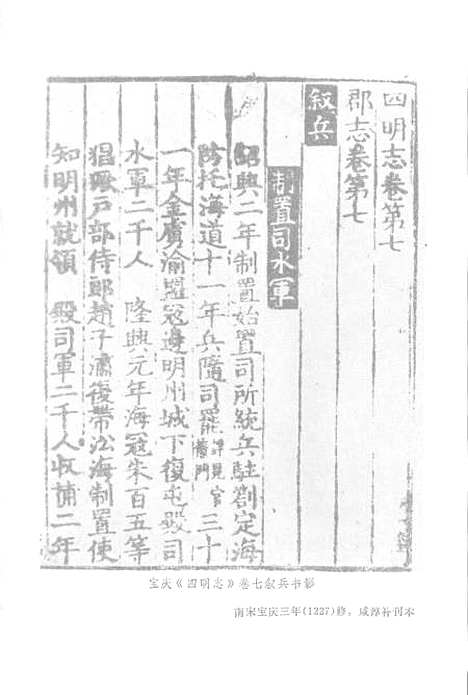 四明志卷第七
郡志卷第七
叙兵
制置司水軍
紹興二年制置始置司所統兵駐劄定海
防托海道十一年兵隨司罷詳見官三十
藁門
一年金虜渝盟冦邊明州城下復屯殿司
水軍二千人 隆興元年海冦朱百五等
猖獗戶部侍郎趙子潚復帶沿海制置使
知明州就領 殿司軍二千人收捕二年
宝庆《四明志》卷七叙兵书影
南宋宝庆三年(1227)修，咸淳补刊本